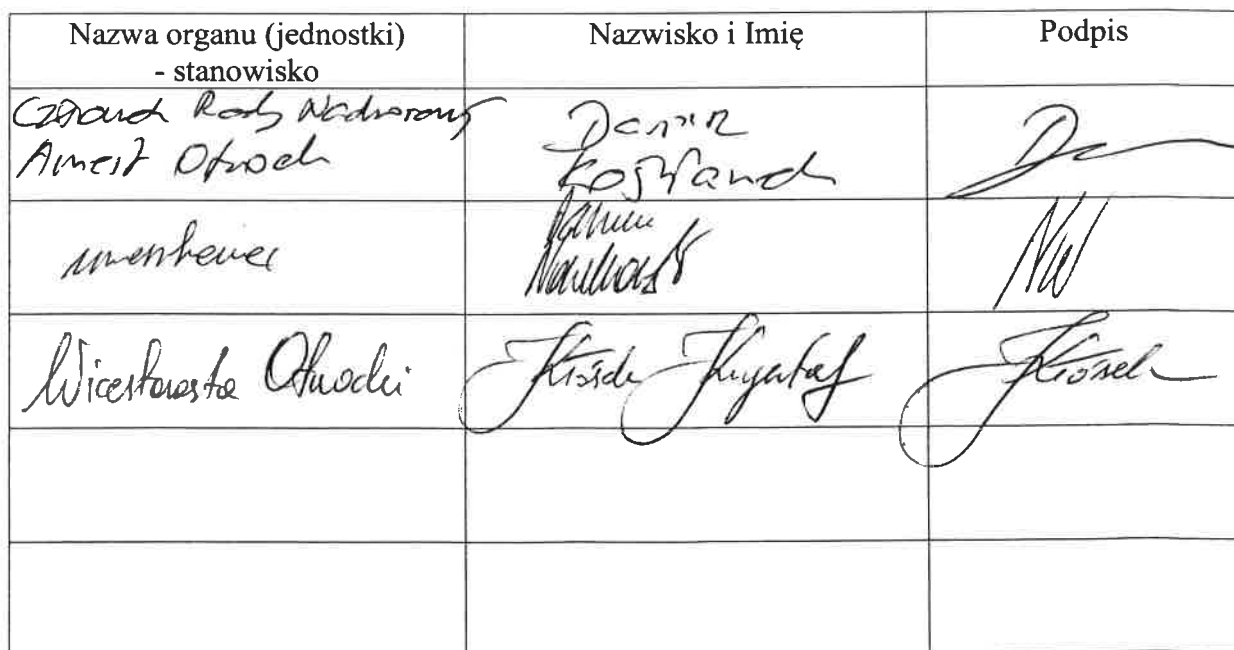 Nazwa organu (jednostki)
- stanowisko
Nazwisko i Imię
Podpis
Członek Rady Nadzorczej
Amest Otwock
Dariusz
mieszkaniec
Wicestarosta Otwocki
Kłósek Krzysztof
Kłósek